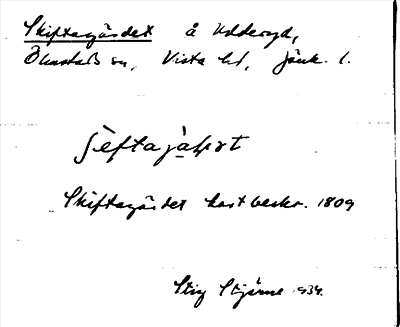 Skiftagärdet å Udderyd,
Ölmstads sn, Vista hd, Jönk. l.
ʃèftajàʜʀt
Skiftagärdet kartbeskr. 1809
Stig Stjärne 1934.